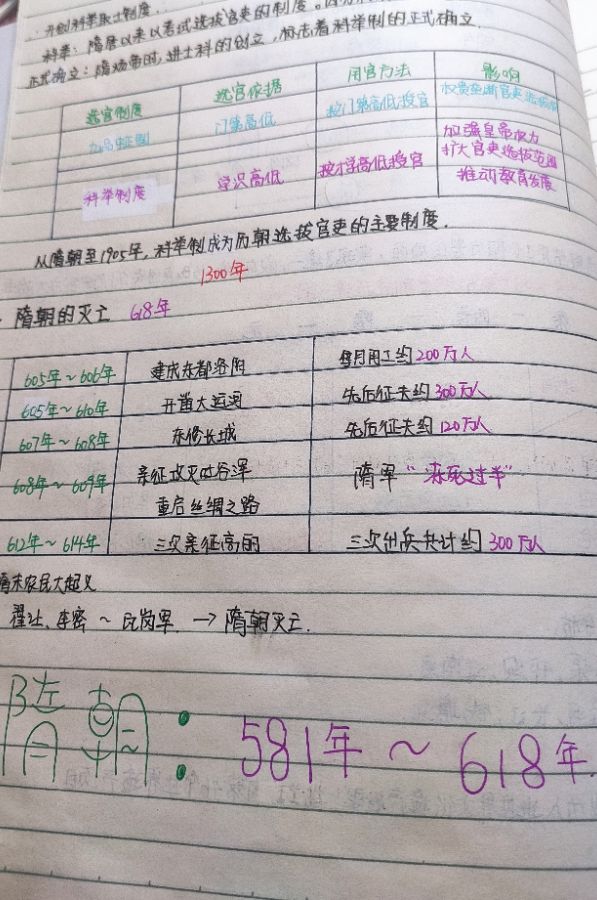 开创科举取士制度.
科举: 隋唐以来以考试选拔官吏的制度。
正式确立: 隋炀帝时, 进士科的创立, 标志着科举制的正式确立.
选官制度 选官依据 用官方法 影响
九品中正制 门第高低 按门第高低授官 权贵垄断官吏选拔
科举制度 学识高低 按才学高低授官 加强皇帝权力
扩大官吏选拔范围
推动教育发展
从隋朝至1905年, 科举制成为历朝选拔官吏的主要制度.
1300年
隋朝的灭亡 618年
605年~606年 建成东都洛阳 每月用工约200万人
605年~610年 开凿大运河 先后征夫约300万人
607年~608年 东修长城 先后征夫约120万人
608年~609年 亲征攻灭吐谷浑 隋军“冻死过半”
重启丝绸之路
612年~614年 三次亲征高丽 三次出兵共计约300万人
隋末农民大起义
翟让、李密~瓦岗军 → 隋朝灭亡.
隋朝: 581年~618年.